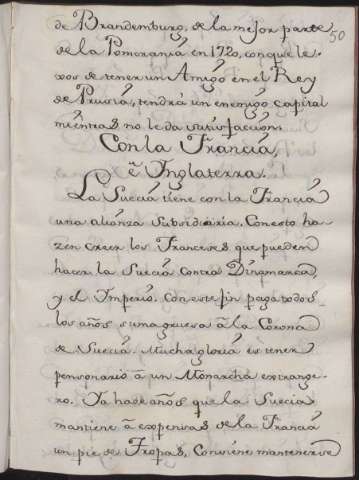 50
de Brandemburgo, de la mejor parte
de la Pomerania en 1720, conque le-
xos de tener un Amigo en el Rey
de Prusia, tendrá un enemigo capital
mientras no le da satisfaccion.
Con la Francia,
ê Inglaterra.
La Suecia tiene con la Francia
una alianza Subsidiaria. Con esto ha-
zen creer los Franceses que pueden
hacer la Suecia contra Dinamarca,
y el Imperio. Con este fin paga todos
los años suma gruesa â la Corona
de Suecia. Mucha gloria es tener
pensionario â un Monarcha extrange-
ro. Ya hade años que la Suecia
mantiene â expensas de la Francia
un pie de Tropas, Conviene mantenerse